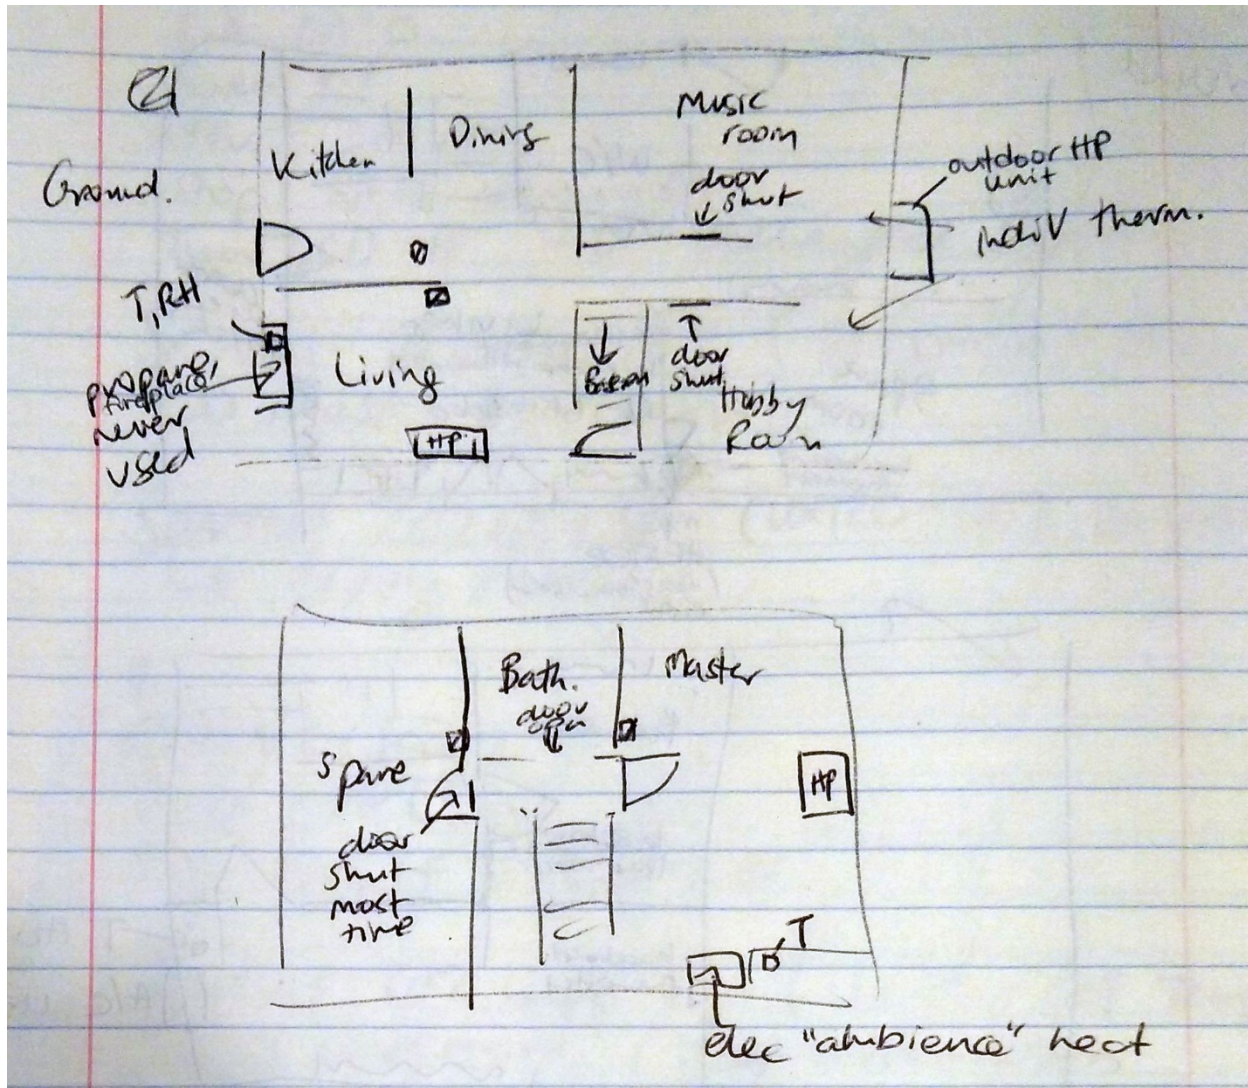 Ground.
Kitchen
Dining
Music
room
door
shut
outdoor HP
unit
indiV therm.
T, RH
propane,
fireplace,
never
used
Living
HP
door
shut
Hobby
Room
Bath.
door
open
Master
Spare
door
shut
most
time
HP
T
elec "ambience" heat